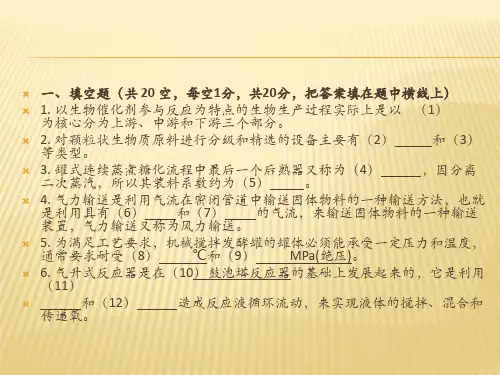 一、填空题（共 20 空，每空1分，共20分，把答案填在题中横线上）
1. 以生物催化剂参与反应为特点的生物生产过程实际上是以 （1）
为核心分为上游、中游和下游三个部分。
2. 对颗粒状生物质原料进行分级和精选的设备主要有（2）_____和（3）
等类型。
3. 罐式连续蒸煮糖化流程中最后一个后熟器又称为（4）______，因分离
二次蒸汽，所以其装料系数约为（5）_____。
4. 气力输送是利用气流在密闭管道中输送固体物料的一种输送方法，也就
是利用具有（6）____和（7）_____的气流，来输送固体物料的一种输送
装置，气力输送又称为风力输送。
5. 为满足工艺要求，机械搅拌发酵罐的罐体必须能承受一定压力和温度，
通常要求耐受（8）____℃和（9）______MPa(绝压)。
6. 气升式反应器是在（10）鼓泡塔反应器的基础上发展起来的，它是利用
（11）
______和（12）______造成反应液循环流动，来实现液体的搅拌、混合和
传递氧。